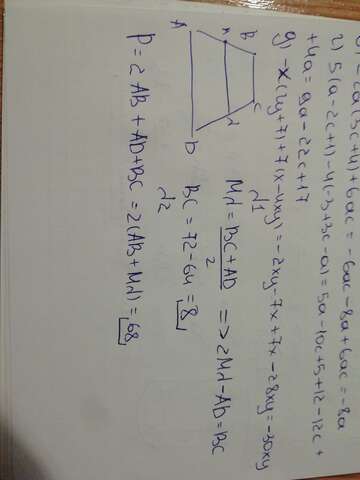 -2a(3c+4)+6ac = -6ac-8a+6ac = -8a
г) 5(a-2c+1)-4(-3+3c-a) = 5a-10c+5+12-12c+
+4a = 9a-22c+17
g) -x(2y+7)+7(x-4xy) = -2xy-7x+7x-28xy = -30xy
√1
A
B
C
D
Md = BC+AD / 2 => 2Md-AD = BC
BC = 72-64 = 8
√2
P = 2AB+AD+BC = 2(AB+Md) = 68